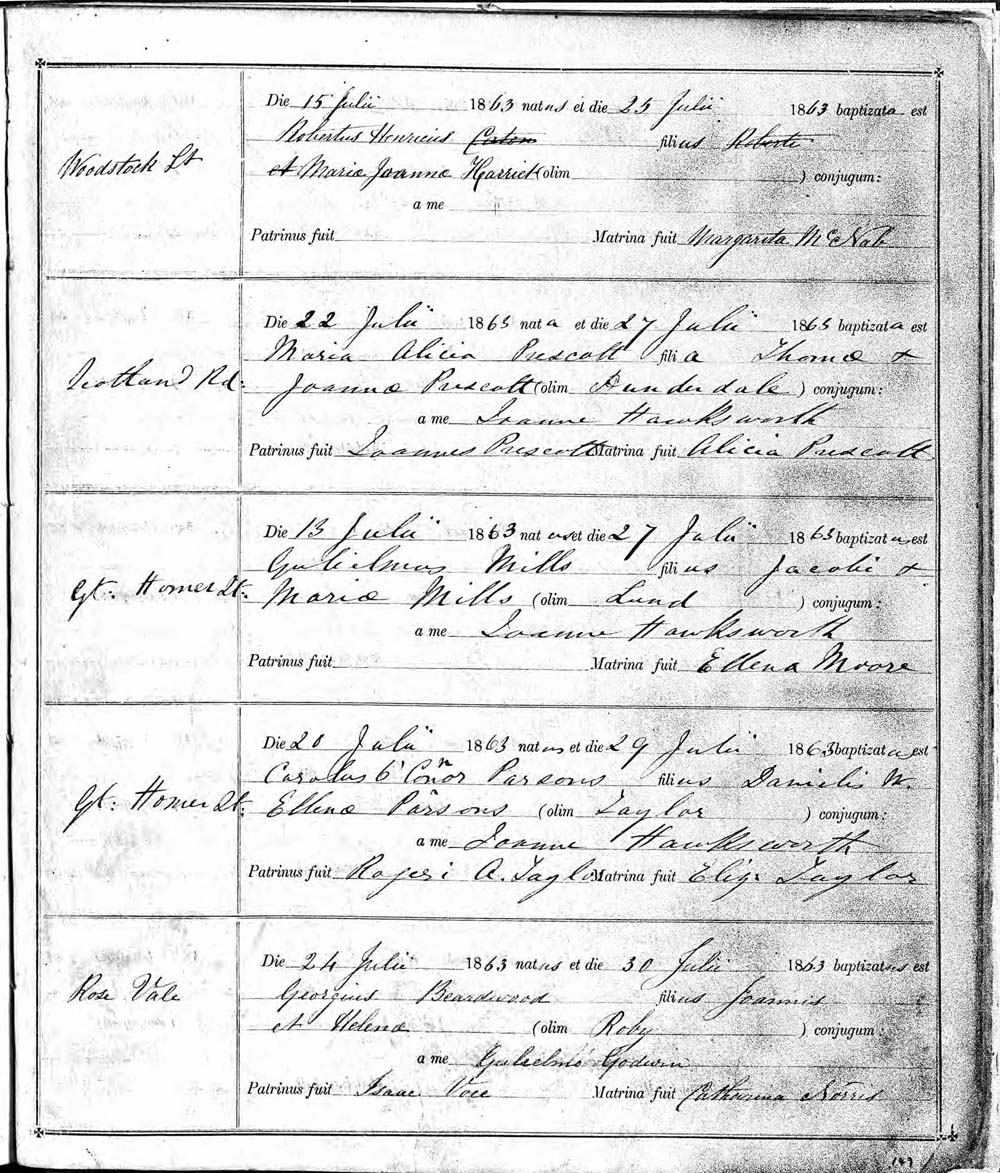 Die 15 Julii 1863 natus et die 25 Julii 1863 baptizata est
Robertus Henricus filius Roberti
Woodstock St
et Mariæ Joannæ Harriet (olim ) conjugum:
a me
Patrinus fuit Matrina fuit Margarita McNab
Die 22 Julii 1863 nata et die 27 Julii 1863 baptizata est
Maria Alicia Prescott filia Thomæ &
Scotland Rd: Joannæ Prescott (olim Bunderdale ) conjugum:
a me Joanne Hawksworth
Patrinus fuit Joannes Prescott Matrina fuit Alicia Prescott
Die 13 Julii 1863 natus et die 27 Julii 1863 baptizatus est
Gulielmus Mills filius Jacobi &
Gt. Homer St: Mariæ Mills (olim Lund ) conjugum:
a me Joanne Hawksworth
Patrinus fuit Matrina fuit Ellena Moore
Die 20 Julii 1863 natus et die 29 Julii 1863 baptizatus est
Carolus O'Connor Parsons filius Danielis W.
Gt. Homer St: Ellenæ Parsons (olim Taylor ) conjugum:
a me Joanne Hawksworth
Patrinus fuit Rogeri A. Taylor Matrina fuit Eliz. Taylor
Die 24 Julii 1863 natus et die 30 Julii 1863 baptizatus est
Rose Vale Georgius Beardwood filius Joannis
et Helenæ (olim Roby ) conjugum:
a me Gulielmo Godwin
Patrinus fuit Isaac Voce Matrina fuit Catharina Norris